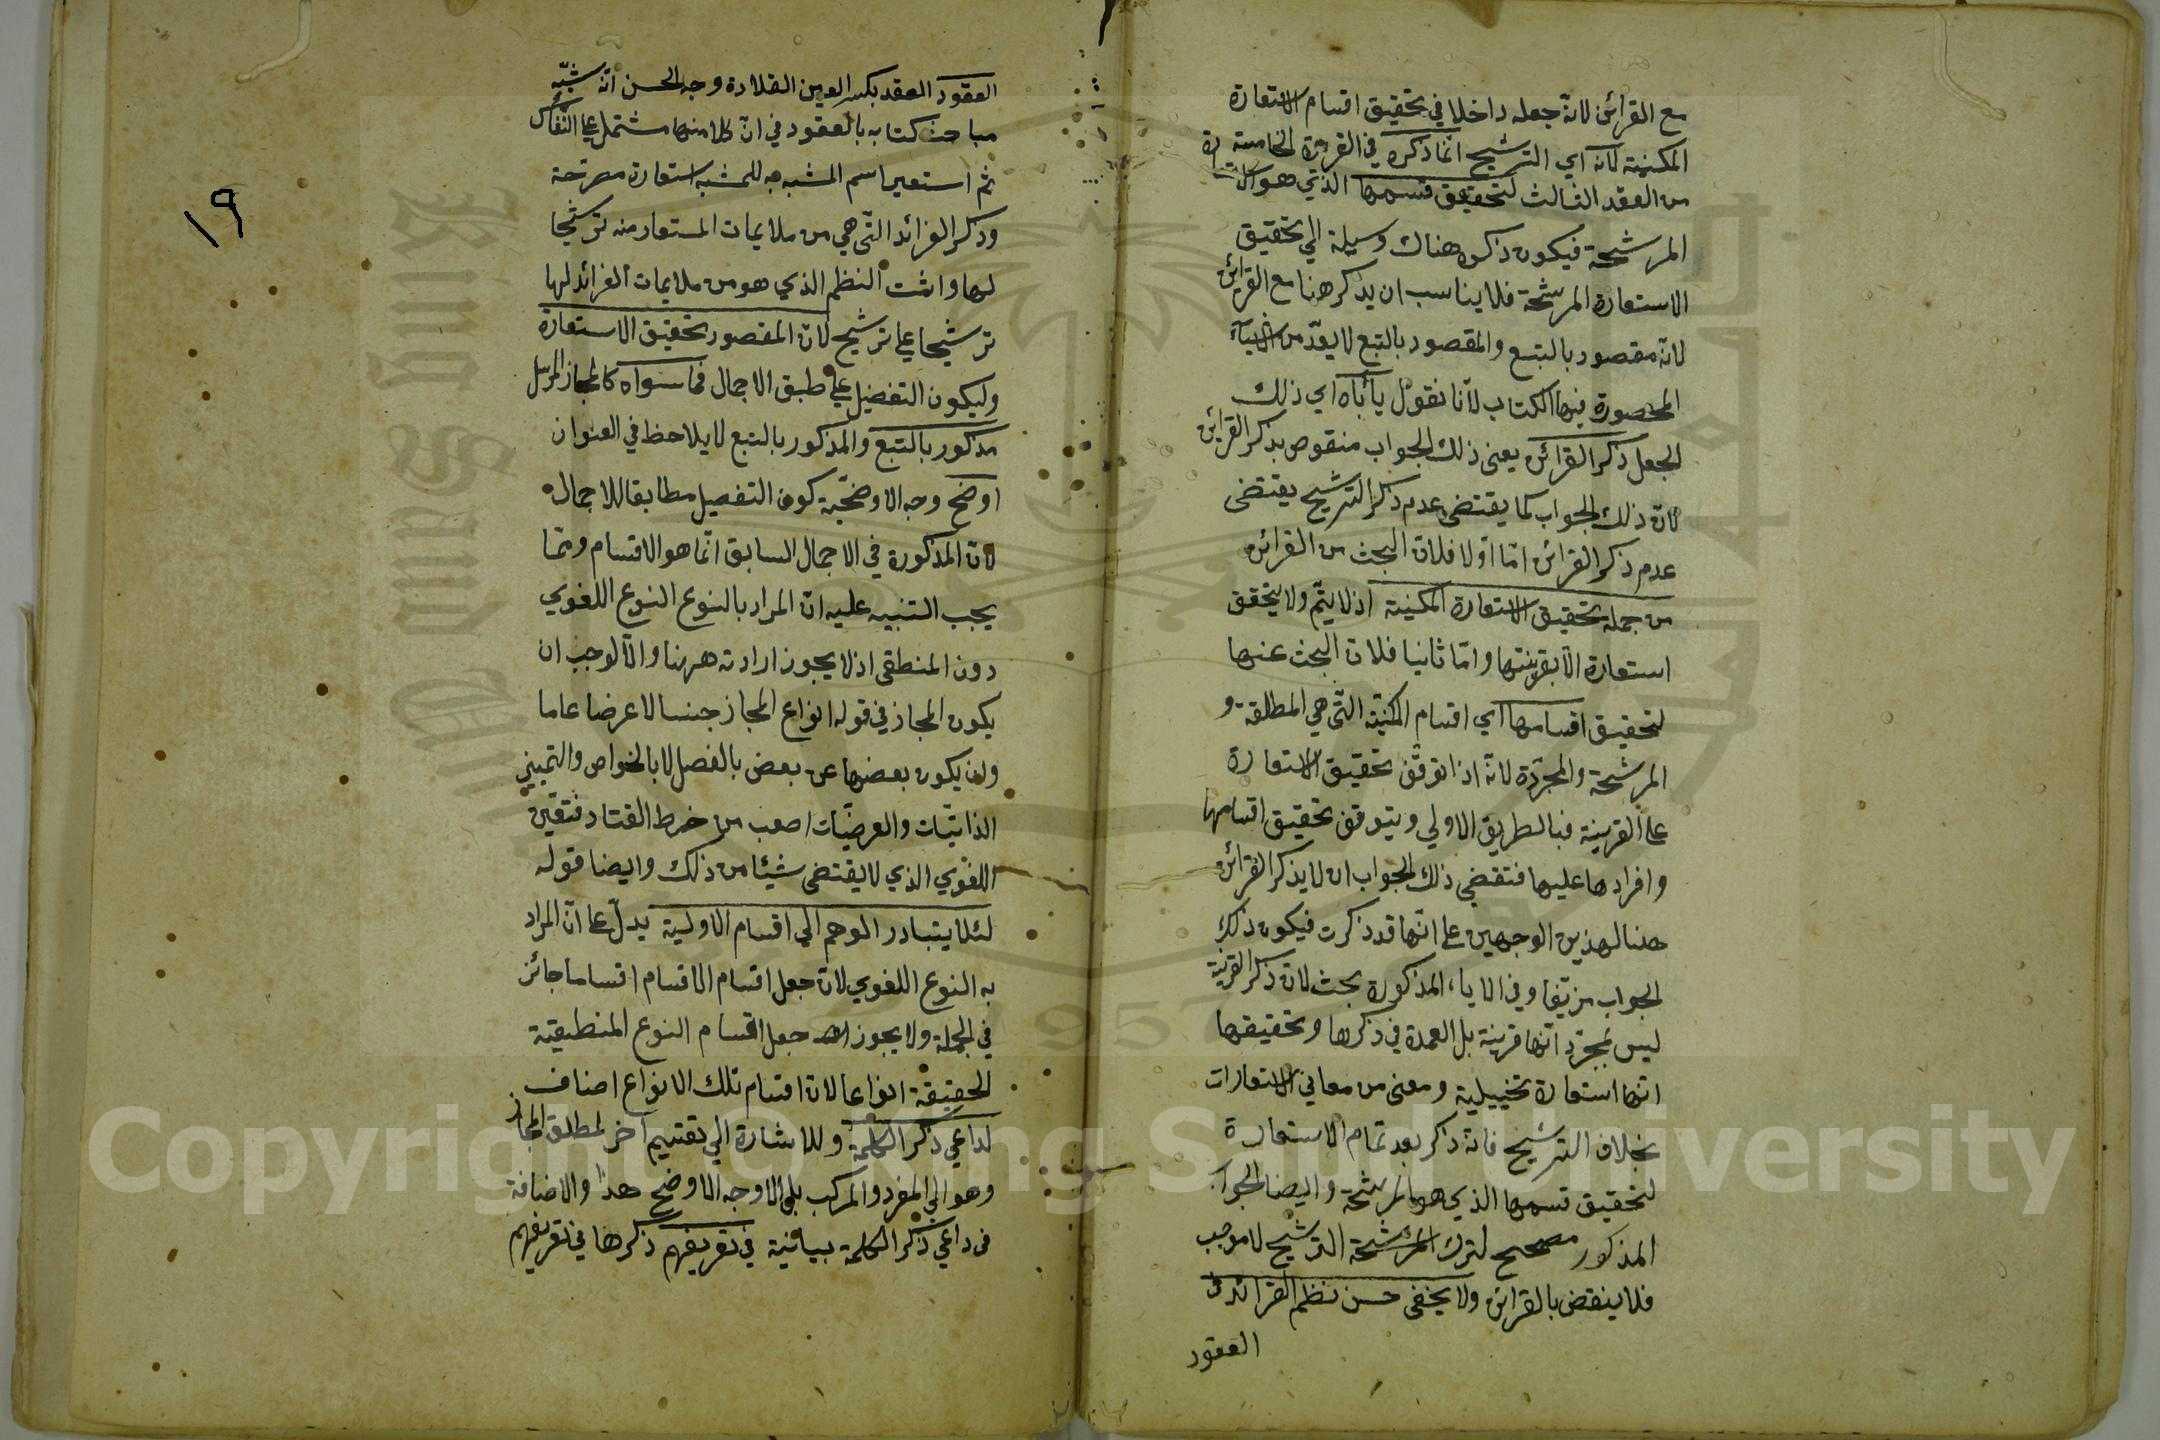 مع القرائن لانه جعله داخلا في تحقيق اقسام الاستعارة
المكنية لانه اي الترشيح انما ذكره في الفريدة الخامسة
من العقد الثالث لتحقيق قسمها الذي هو الاستعارة
المرشحة فيكون ذكره هناك وسيلة الي تحقيق
الاستعارة المرشحة فلا يناسب ان يذكر هنا مع القرائن
لانه مقصود بالتبع والمقصود بالتبع لا يعد من الاشياء
المحصورة فيها الكتاب لانا نقول يأباه اي ذلك
الجعل ذكر القرائن يعني ذلك الجواب منقوص بذكر القرائن
لان ذلك الجواب كما يقتضي عدم ذكر الترشيح يقتضي
عدم ذكر القرائن امّا اولا فلان البحث من القرائن
من جملة تحقيق الاستعارة المكنية اذ لا يتم ولا يتحقق
استعارة الا بقرينتها وامّا ثانيا فلان البحث عنها
لتحقيق اقسامها اي اقسام المكنية التي هي المطلقة و
المرشحة والمجردة لانه اذا توقف تحقيق الاستعارة
علي القرينة فبالطريق الاولي ويتوقف تحقيق اقسامها
وافرادها عليها فتقتضي ذلك الجواب ان لا يذكر القرائن
هنا لهذين الوجهين علي انها قد ذكرت فيكون ذلك
الجواب مزيفا وفي الاباء المذكورة بحث لان ذكر القرينة
ليس لمجرد انها قرينة بل العمدة في ذكرها وتحقيقها
انها استعارة تخييلية ومعني من معاني الاستعارات
بخلاف الترشيح فانه ذكر بعد تمام الاستعارة
لتحقيق قسمها الذي هو المرشحة وايضا الجواب
المذكور مصحح لترك الترشيح لا موجب
فلا ينقض بالقرائن ولا يخفي حسن نظم الفرائد في
العقود
١٩
العقود العقد بكسر العين القلادة وجه الحسن انه شبّه
مباحث كتابه بالعقود في ان كلا منها مشتمل علي النفائس
ثم استعير اسم المشبه به للمشبه استعارة مصرحة
وذكر الفرائد التي هي من ملايمات المستعار منه ترشيحا
لها واثبت النظم الذي هو من ملايمات الفرائد لها
ترشيحا علي ترشيح لان المقصود تحقيق الاستعارة
وليكون التفصيل علي طبق الاجمال فما سواه كالمجاز المرسل
مذكور بالتبع والمذكور بالتبع لا يلاحظ في العنوان
اوضح وجه الاوضحية كون التفصيل مطابقا للاجمال
لان المذكورة في الاجمال السابق انما هو الاقسام ومما
يجب التنبيه عليه ان المراد بالنوع النوع اللغوي
دون المنطقي اذ لا يجوز ارادته ههنا والا لوجب ان
يكون المجاز في قوله انواع المجاز جنسا لا عرضا عاما
وان يكون بعضها عن بعض بالفصل لا بالخواص والتمييز
الذاتيات والعرضيات اصعب من خرط القتاد فتعين
اللغوي الذي لا يقتضي شيئا من ذلك وايضا قوله
لئلا يتبادر الوهم الي اقسام الاولية يدل علي ان المراد
به النوع اللغوي لان جعل اقسام الاقسام اقساما جائز
في الجملة ولا يجوز جعل اقسام النوع المنطيقية
الحقيقة انواعا لان اقسام تلك الانواع اصناف
لداعي ذكر الكلمة وللاشارة الي تقسيم آخر لمطلق المجاز
وهو الي المفرد والمركب بل الاوجه الاوضح هذا والاضافة
في داعي ذكر الكلمة بيانية في تعريفهم ذكرها في تعريفهم
Copyright © King Saud University